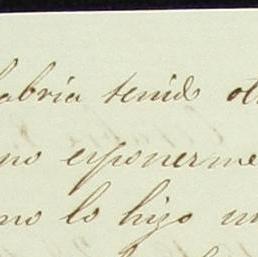 abria tenido ot
no esponerme
mo lo hizo un